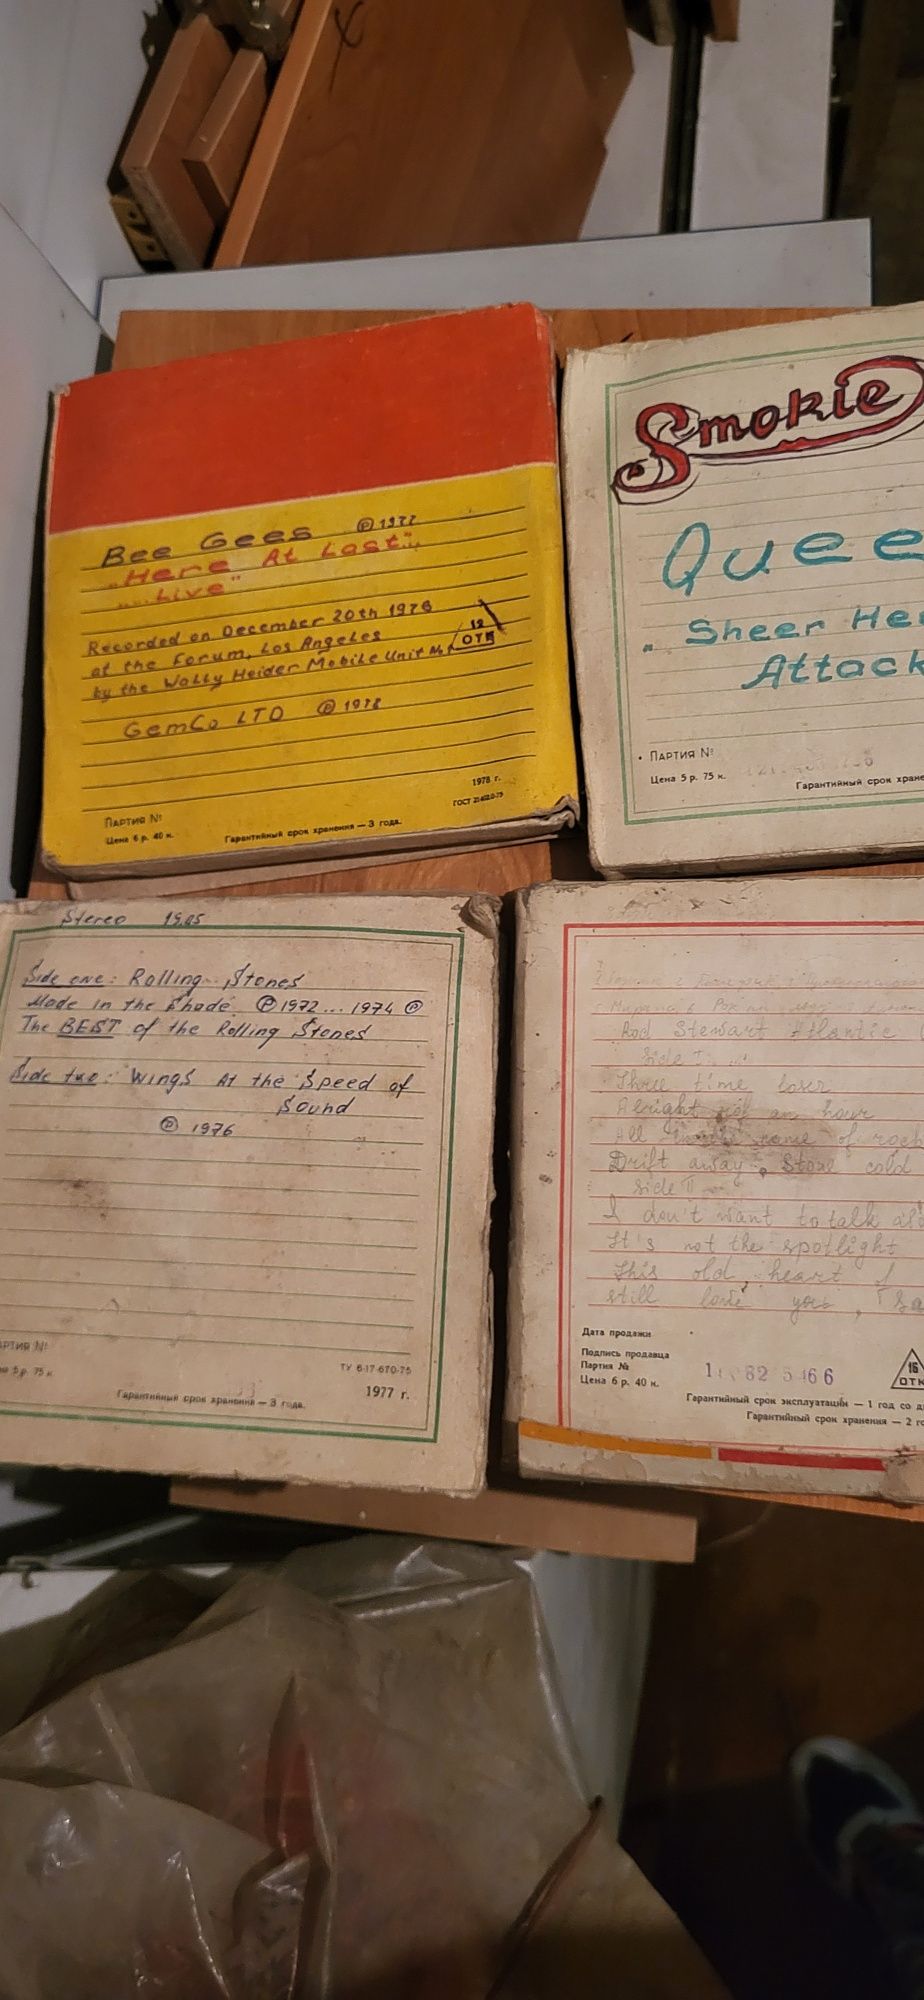 Bee Gees ℗ 1977
„Here At Last"..
„...Live"
Recorded on December 20th 1976
at the Forum, Los Angeles
by the Wally Heider Mobile Unit №1
12
ОТК
GemCo LTD ℗ 1978
1978 г.
ПАРТИЯ №
ГОСТ 21402.0-75
Цена 6 р. 40 к. Гарантийный срок хранения — 3 года.
Smokie
Quee
„Sheer Hea
Attack
ПАРТИЯ №
Цена 5 р. 75 к.
Гарантийный срок хране
Stereo 19,05
Side one: Rolling Stones
Made in the Shade. ℗ 1972 ... 1974 ℗
The BEST of the Rolling Stones
Side two: Wings At the Speed of
Sound
℗ 1976
АРТИЯ №
на 5 р. 75 к.
ТУ 6-17-670-75
Гарантийный срок хранения — 3 года.
1977 г.
Rod Stewart Atlantic
Side I
Three time loser
Alright for an hour
All name of rock
Drift away, Stone cold
Side II
I don't want to talk
It's not the spotlight
This old heart of
still love you, Sa
Дата продажи
Подпись продавца
Партия №
Цена 6 р. 40 к.
16
ОТК
Гарантийный срок эксплуатации — 1 год со д
Гарантийный срок хранения — 2 го